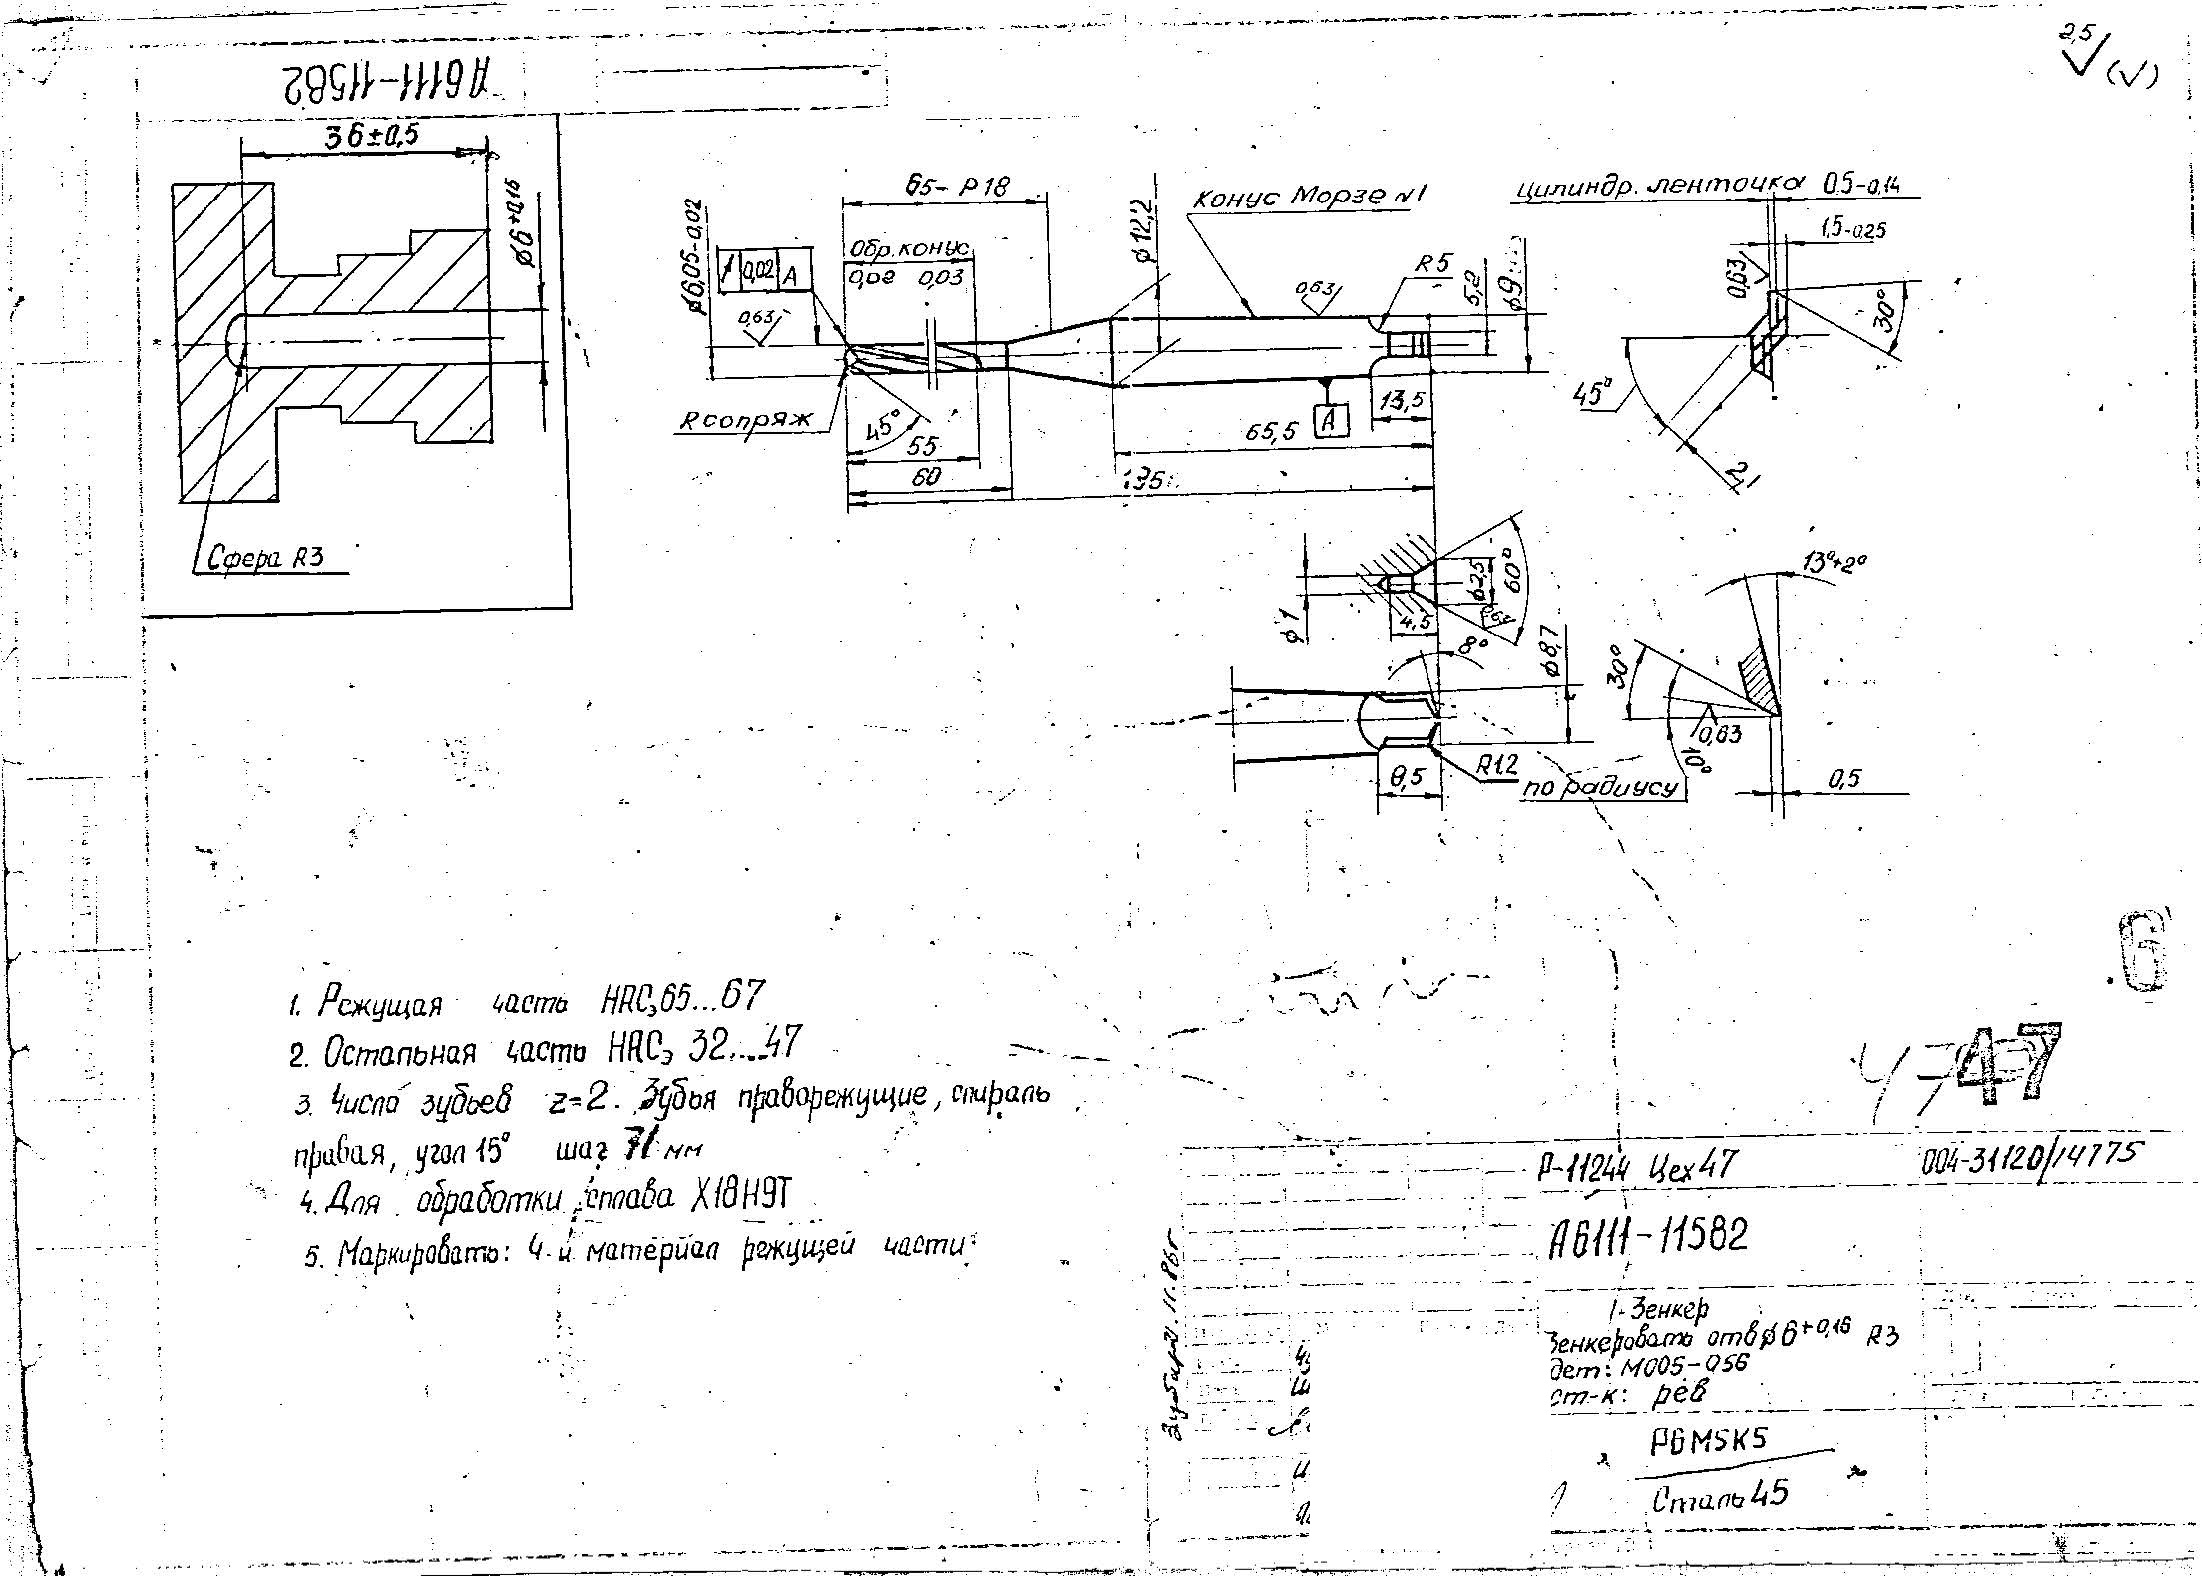 А6111-11582
2,5 (√)
36±0,5
ϕ6+0,15
Сфера R3
65- Р18
Обр. конус
0,02 0,03
ϕ6,05-0,02
0,02 А
0,63
R сопряж
45°
55
60
ϕ12,2
Конус Морзе N1
0,63
R5
5,2
ϕ9
А
13,5
65,5
135
цилиндр. ленточка 0,5-0,14
1,5-0,25
0,63
30°
45°
2,1
ϕ1
4,5
ϕ2,5
60°
0,63
8°
ϕ8,7
8,5
R12
13°+2°
30°
10°
0,63
по радиусу
0,5
1. Режущая часть HRCэ 65...67
2. Остальная часть HRCэ 32...47
3. Число зубьев z=2. Зубья праворежущие, спираль
правая, угол 15° шаг 71 мм
4. Для обработки сплава Х18Н9Т
5. Маркировать: Ч. и материал режущей части
6
47 47
Р-11244 Цех 47
004-31120/14775
А6111-11582
1-Зенкер
Зенкеровать отв ϕ6+0,16 R3
дет: М005-056
ст-к: рев
Р6М5К5
Сталь 45